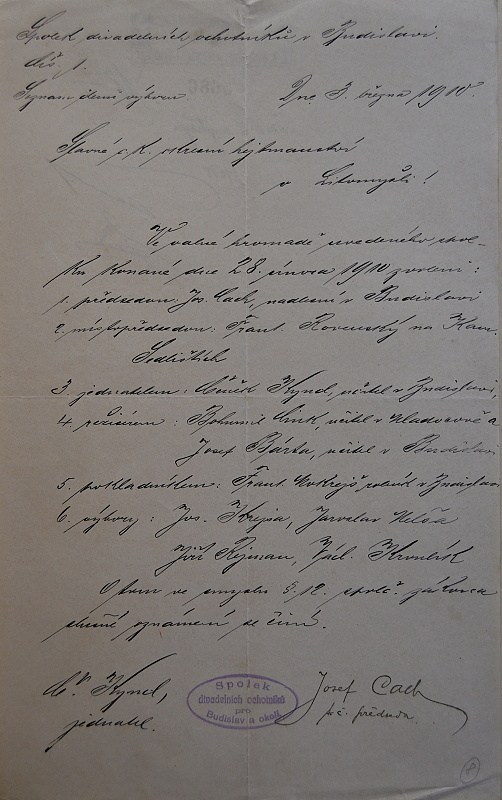 Spolek divadelních ochotníků v Budislavi.
Čís. 1.
Seznam členů výboru
Dne 3. března 1910.
Slavné c. k. okresní hejtmanství
v Litomyšli!
Ve valné hromadě uvedeného spol-
ku konané dne 28. února 1910 zvoleni:
1. předsedou: Jos. Cach, nadlesní v Budislavi
2. místopředsedou: Frant. Rovenský na Kam.
Sedlištích
3. jednatelem: Čeněk Kyncl, učitel v Budislavi,
4. režisérem: Bohumil učitel v a
Josef Bárta, učitel v Budislavi
5. pokladníkem: Frant. rolník v Budislavi
6. výbory: Jos. Krejsa, Jaroslav
Jiří Rejman, Václ.
O tom ve smyslu §. 12. spolč. zákona
slušné oznámení se činí.
Č. Kyncl,
jednatel.
Spolek
divadelních ochotníků
pro
Budislav a okolí
Josef Cach
t. č. předseda.
8